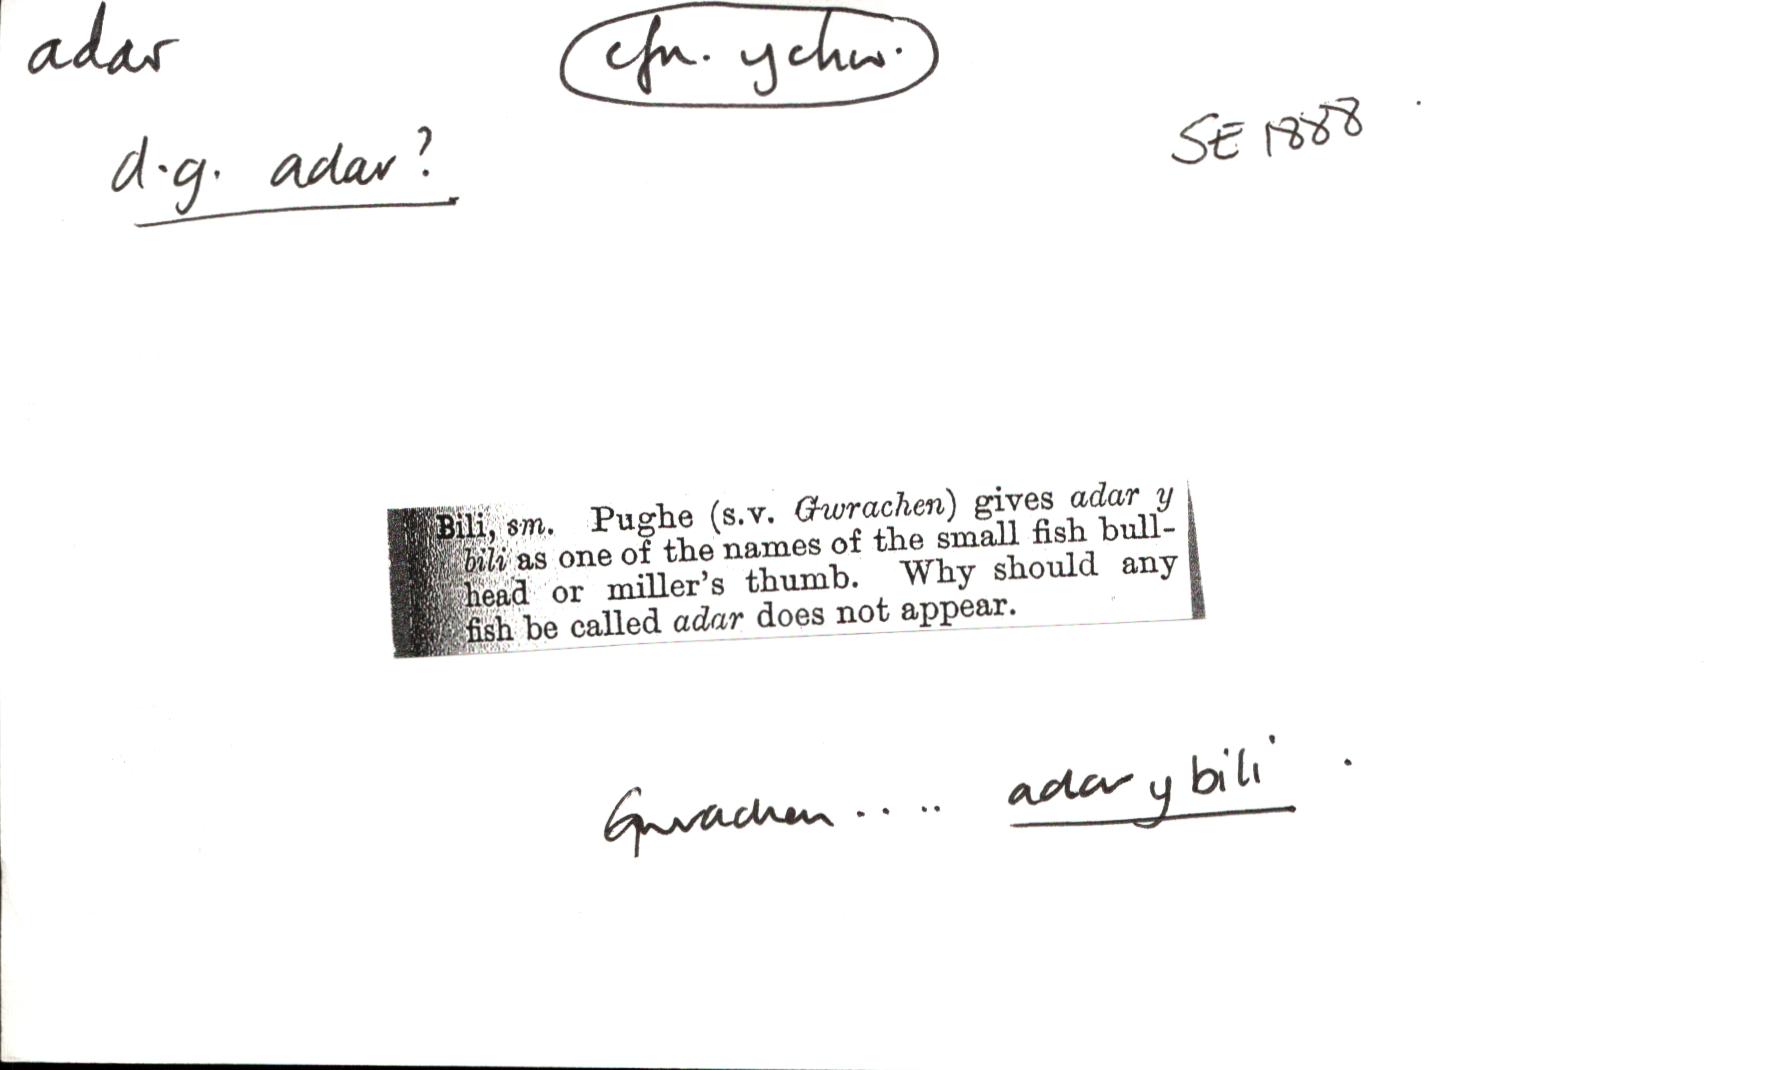 adar
cfn. ychw.
SE 1888
d.g. adar?
Bili, sm. Pughe (s.v. Gwrachen) gives adar y
bili as one of the names of the small fish bull-
head or miller's thumb. Why should any
fish be called adar does not appear.
Gwrachen ..... adar y bili.